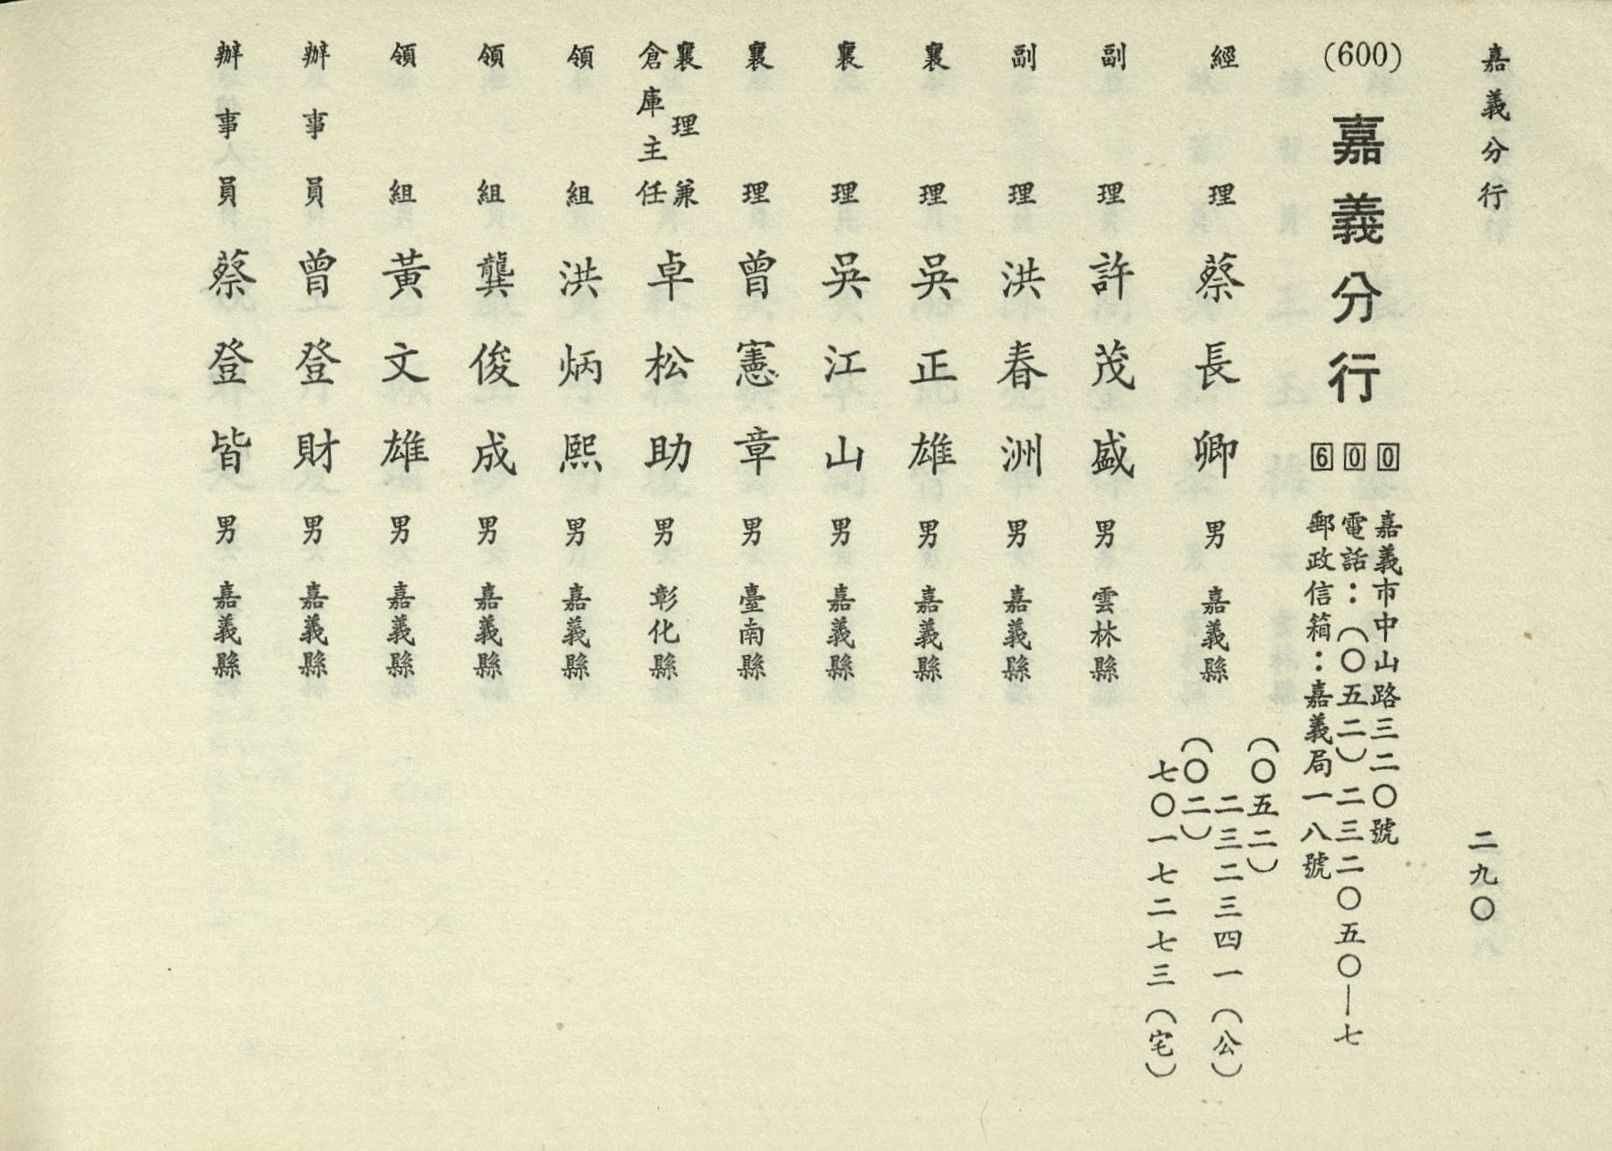 嘉義分行
二九〇
(600)
嘉義分行
600
嘉義市中山路三二〇號
電話：(〇五二)二三二〇五〇—七
郵政信箱：嘉義局一八號
經理 蔡長卿 男 嘉義縣
(〇五二)
二三二三四一(公)
(〇二)
七〇一七二七三(宅)
副理 許茂盛 男 雲林縣
副理 洪春洲 男 嘉義縣
襄理 吳正雄 男 嘉義縣
襄理 吳江山 男 嘉義縣
襄理 曾憲章 男 臺南縣
襄理兼
倉庫主任 卓松助 男 彰化縣
領組 洪炳熙 男 嘉義縣
領組 龔俊成 男 嘉義縣
領組 黃文雄 男 嘉義縣
辦事員 曾登財 男 嘉義縣
辦事員 蔡登皆 男 嘉義縣